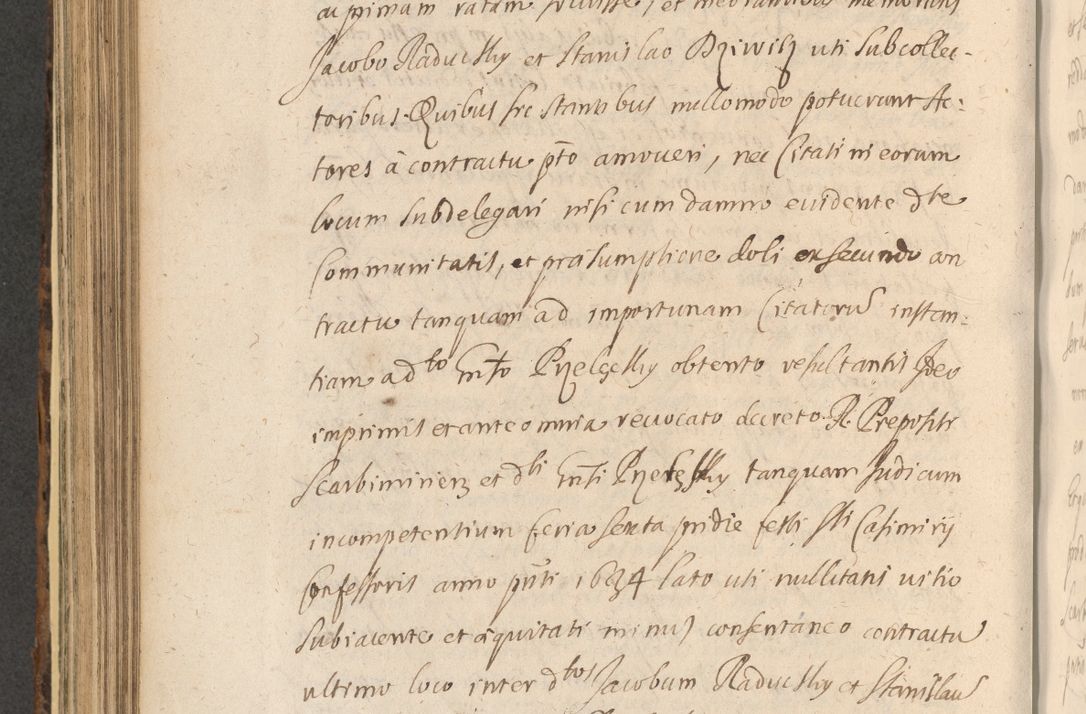 Jacobo Raducsky et Stanislao Dziwisz uti Subcollec-
toribus. Quibus sic stantibus nullomodo potuerunt Ac:
tores à contractu pt̄o amoueri, nec Citati in eorum
locum Subdelegari nisi cum damno euidente dte
Communitatis, et præsumptione doli ex secundo con
tractu tanquam ad importunam Citatorū instan:
tiam ad bto mt̄o obtento resultantis Ideo
inprimis et ante omnia reuocato decreto R. Prepositi
Scarbimirien et dti tanquam Judicum
incompetentium feria sexta pridie festi Sti Casimiri
Confessoris anno pn̄ti 1634 lato uti nullitatis uitio
Subiacente et æquitati minus consentaneo contractū
ultimo loco inter dtos Jacobum Raducsky et Stanislaū